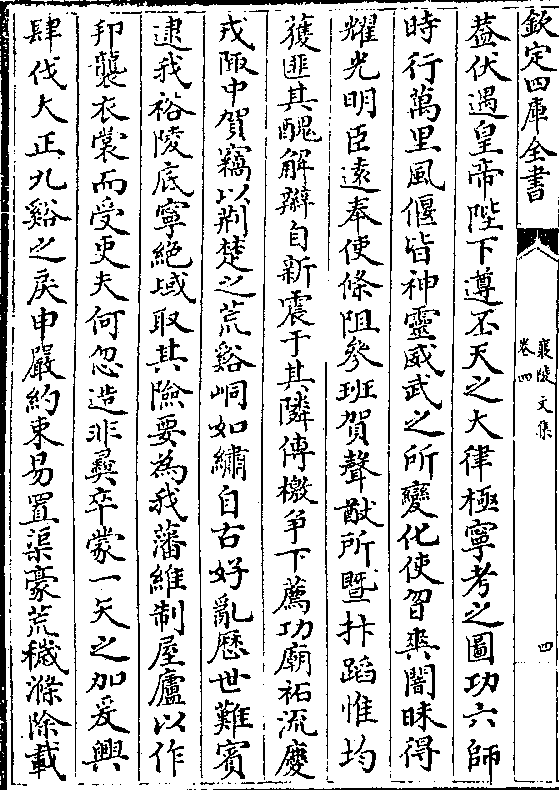 欽定四庫全書
襄陵文集
卷四
四
葢伏遇皇帝陛下遵丕天之大律極寧考之圖功六師
時行萬里風偃皆神靈威武之所變化使曶爽闇昧得
耀光明臣遠奉使條阻參班賀聲猷所暨抃蹈惟均
獲匪其醜解辮自新震于其隣傳檄爭下薦功廟祏流慶
戎陬中賀竊以荆楚之荒谿峒如繡自古好亂歴世難賓
逮我裕陵底寧絶域取其險要為我藩維制屋廬以作
卭襲衣裳而受吏夫何忽造非彞卒蒙一矢之加爰興
肆伐大正九谿之戾申嚴約束易置渠豪荒穢滌除載